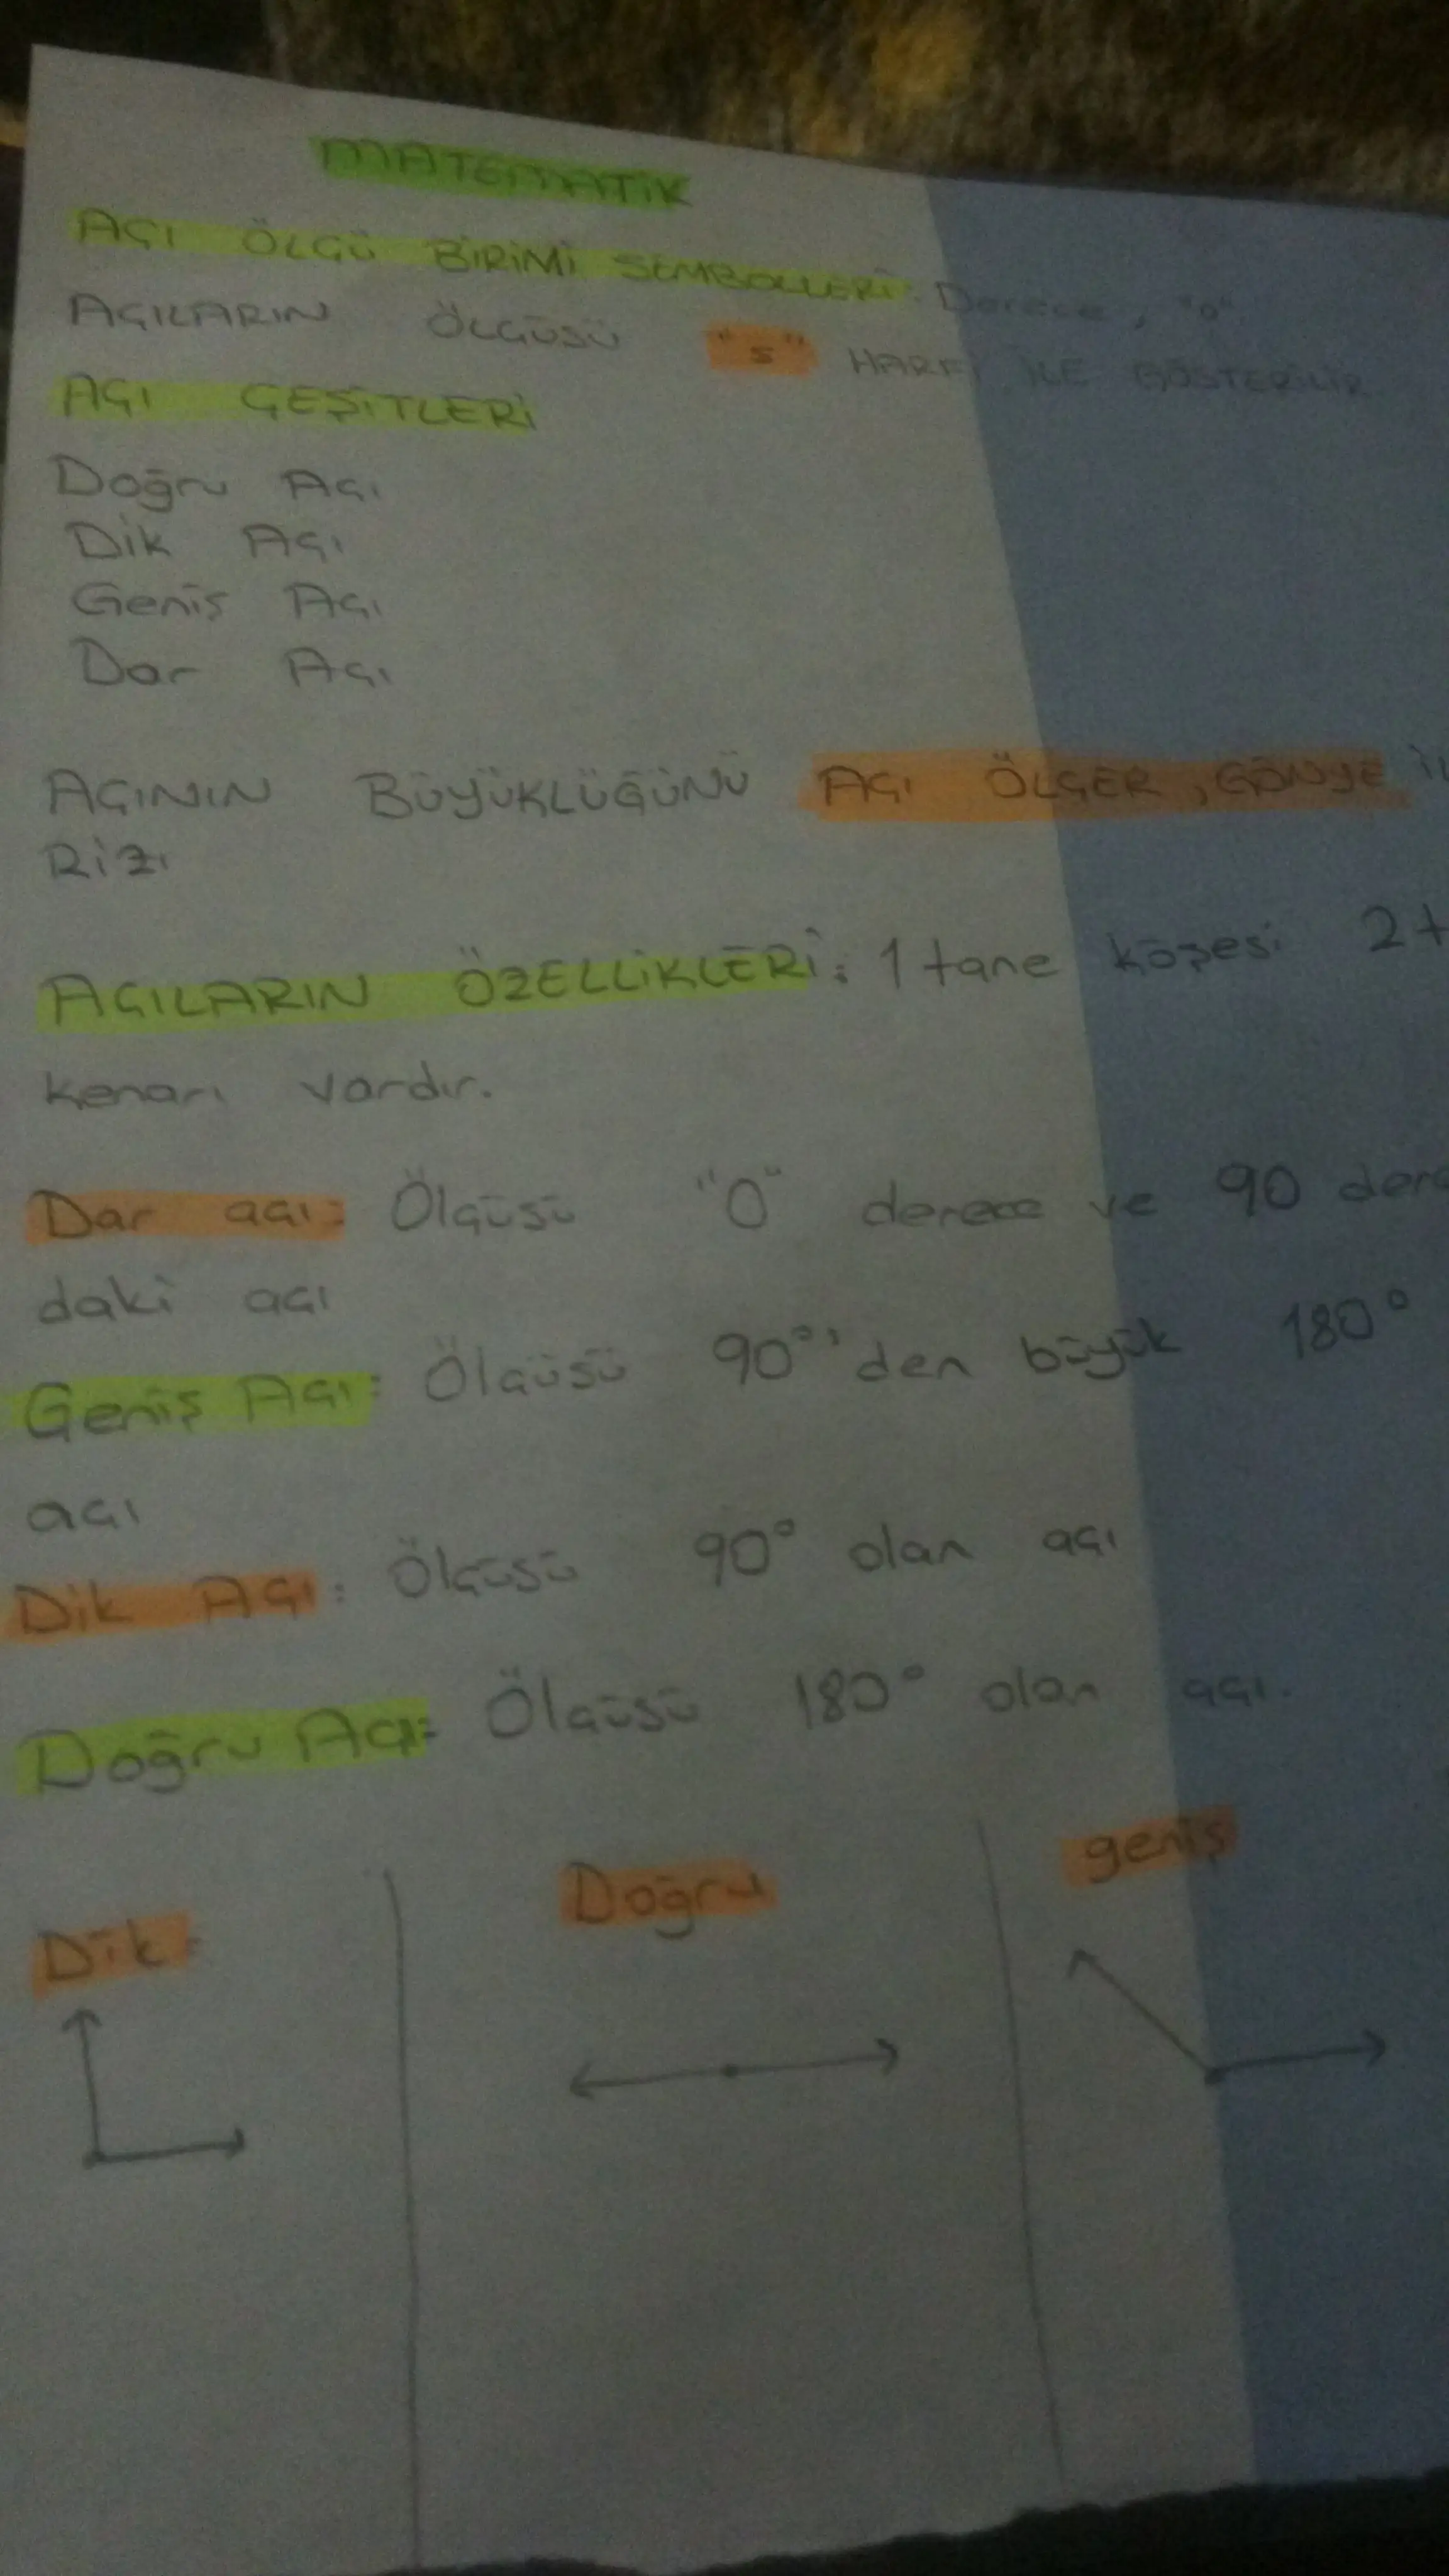 MATEMATİK
AÇI ÖLÇÜ BİRİMİ SEMBOLLERİ: Derece, "o".
AÇILARIN ÖLÇÜSÜ "s" HARFİ İLE GÖSTERİLİR
AÇI ÇEŞİTLERİ
Doğru Açı
Dik Açı
Geniş Açı
Dar Açı
AÇININ BÜYÜKLÜĞÜNÜ AÇI ÖLÇER, GÖNYE
RİZ.
AÇILARIN ÖZELLİKLERİ: 1 tane köşesi 2
kenarı vardır.
Dar açı: Ölçüsü "0" derece ve 90
daki açı
Geniş Açı: Ölçüsü 90°'den büyük 180°
açı
Dik Açı: Ölçüsü 90° olan açı
Doğru Açı: Ölçüsü 180° olan açı.
Dik: Doğru geniş